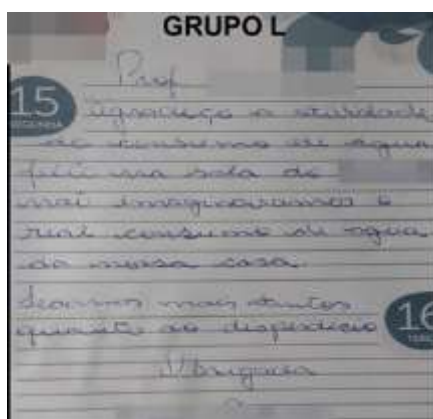 GRUPO L
Prof
15
agradeço a atividade
do consumo de agua
feita na sala do
não imaginavamos o
real consumo de agua
da nossa casa.
ficamos mais atentos
quanto ao disperdicio
16
Obrigada